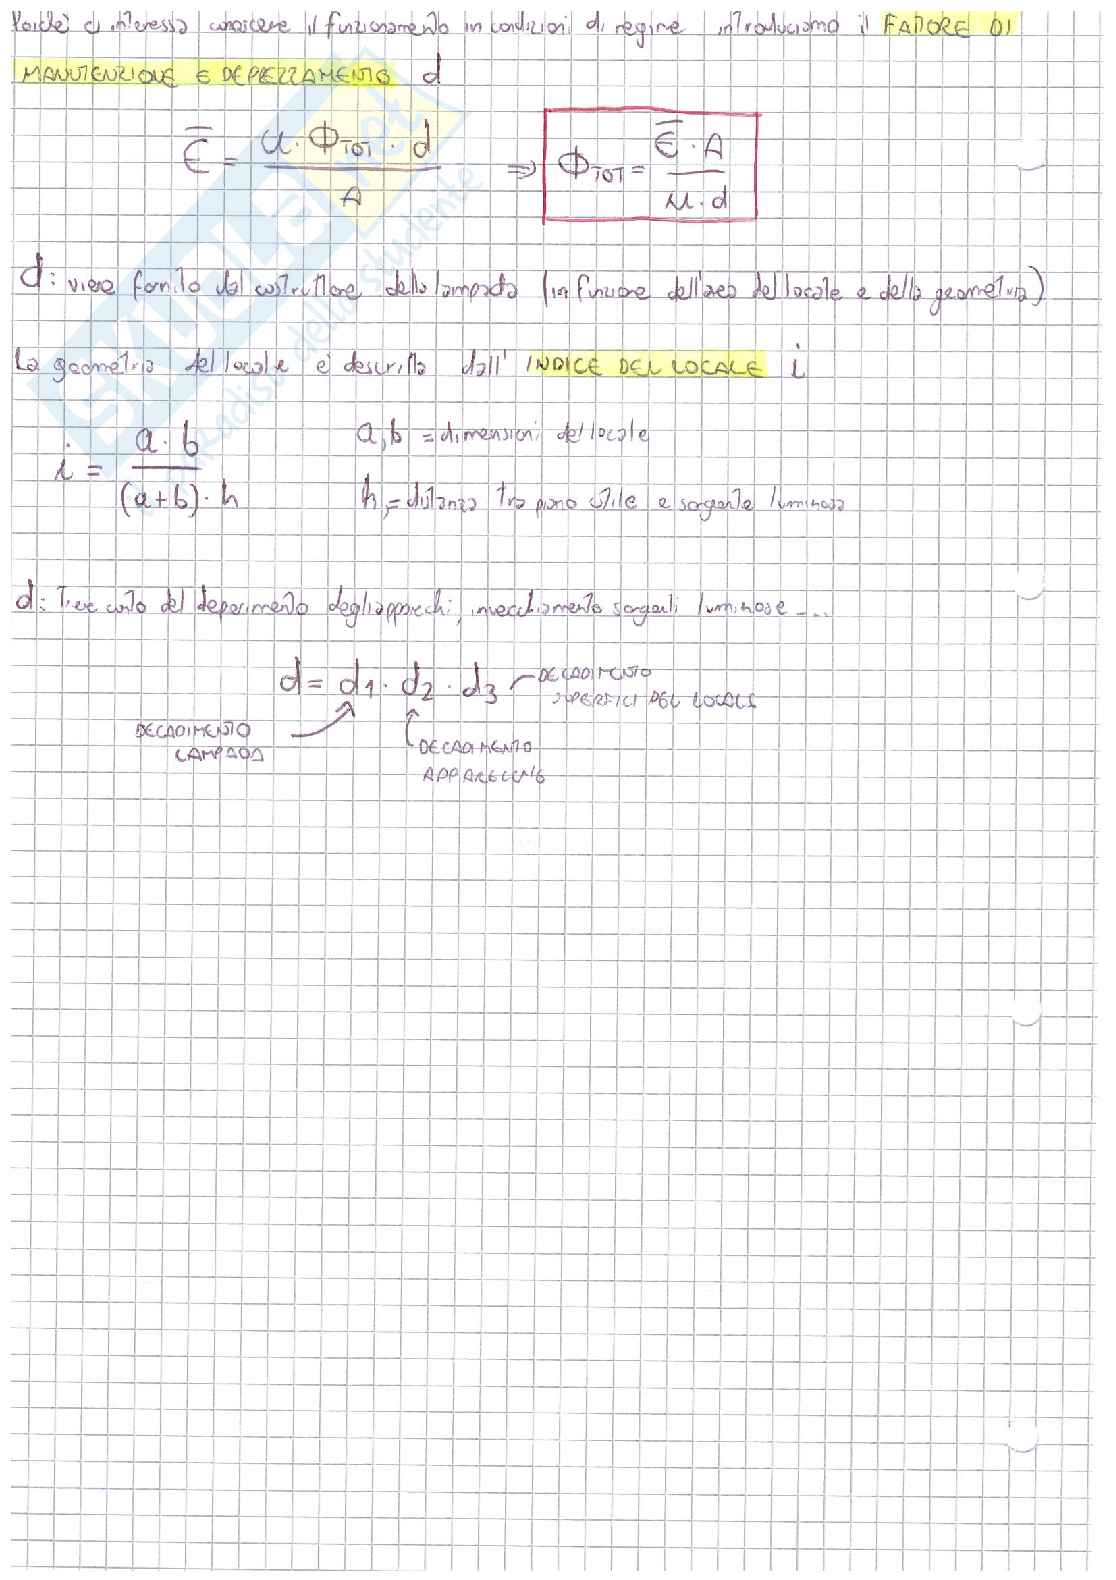 Poichè ci interessa conoscere il funzionamento in condizioni di regime introduciamo il FATTORE DI
MANUTENZIONE E DEPREZZAMENTO d
Ē = u · Φ_TOT · d / A ⇒ Φ_TOT = Ē · A / u · d
d: viene fornito dal costruttore della lampada (in funzione dell'area del locale e della geometria)
La geometria del locale è descritta dall' INDICE DEL LOCALE i
i = a · b / (a+b) · h
a, b = dimensioni del locale
h = distanza tra piano utile e sorgente luminosa
d: Tiene conto del deperimento degli apparecchi, invecchiamento sorgenti luminose ....
d = d1 · d2 · d3
DECADIMENTO
SUPERFICI DEL LOCALE
DECADIMENTO
LAMPADA
DECADIMENTO
APPARECCHIO
SKUOLA.net
il paradiso dello studente